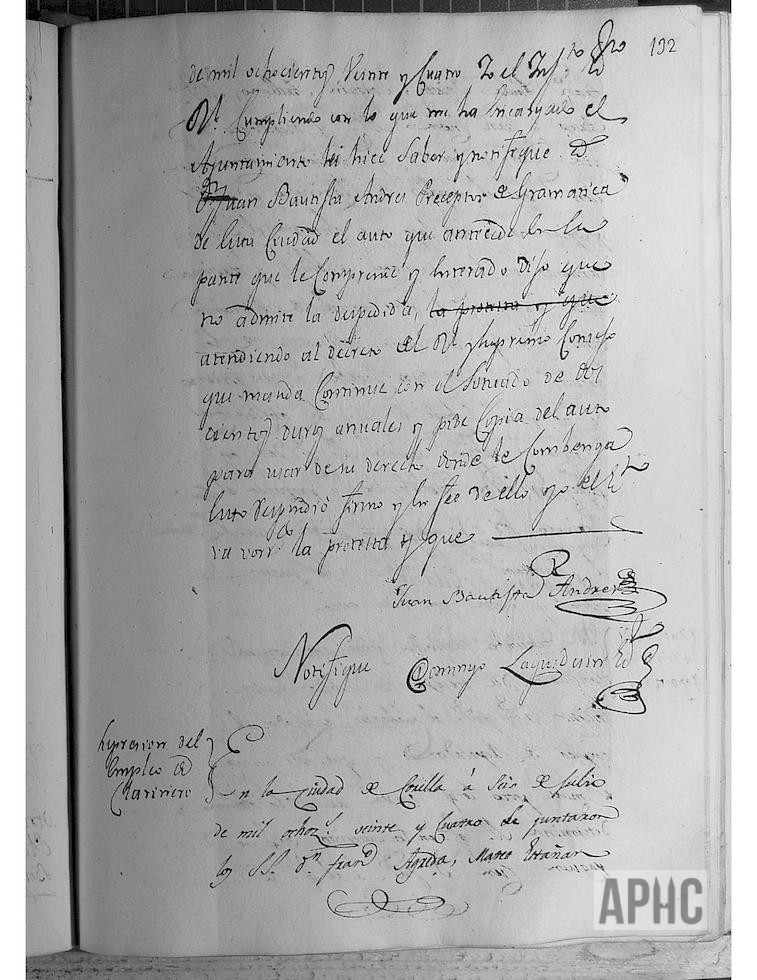 132
de mil ochocientos Veinte y Cuatro Yo el Infto Ssno
Rl. Cumpliendo con lo que me ha encargado el
Ajuntamiento lei hice Saber y notifique a
Dn Juan Bautista Andres Preceptor de Gramatica
de esta Ciudad el auto que antecede en la
parte que le Comprende y enterado dijo que
no admite la despedida, la protesta y que
atendiendo al decreto del Rl y Supremo Consejo
que manda Continue con el Situado de dos
cientos duros anuales y pide Copia del auto
para usar de su derecho donde le Combenga
esto Respondio firmo y en fee de ello yo el
va vorrdo la protesta y que
Juan Bautista Andres
Notifique Domingo
Supresion del
Empleo de
Clarinero
En la Ciudad de Corella á Seis de Julio
de mil ochozs. veinte y Cuatro se juntaron
los SS. Dn. Franco Agreda, Mateo
APHC